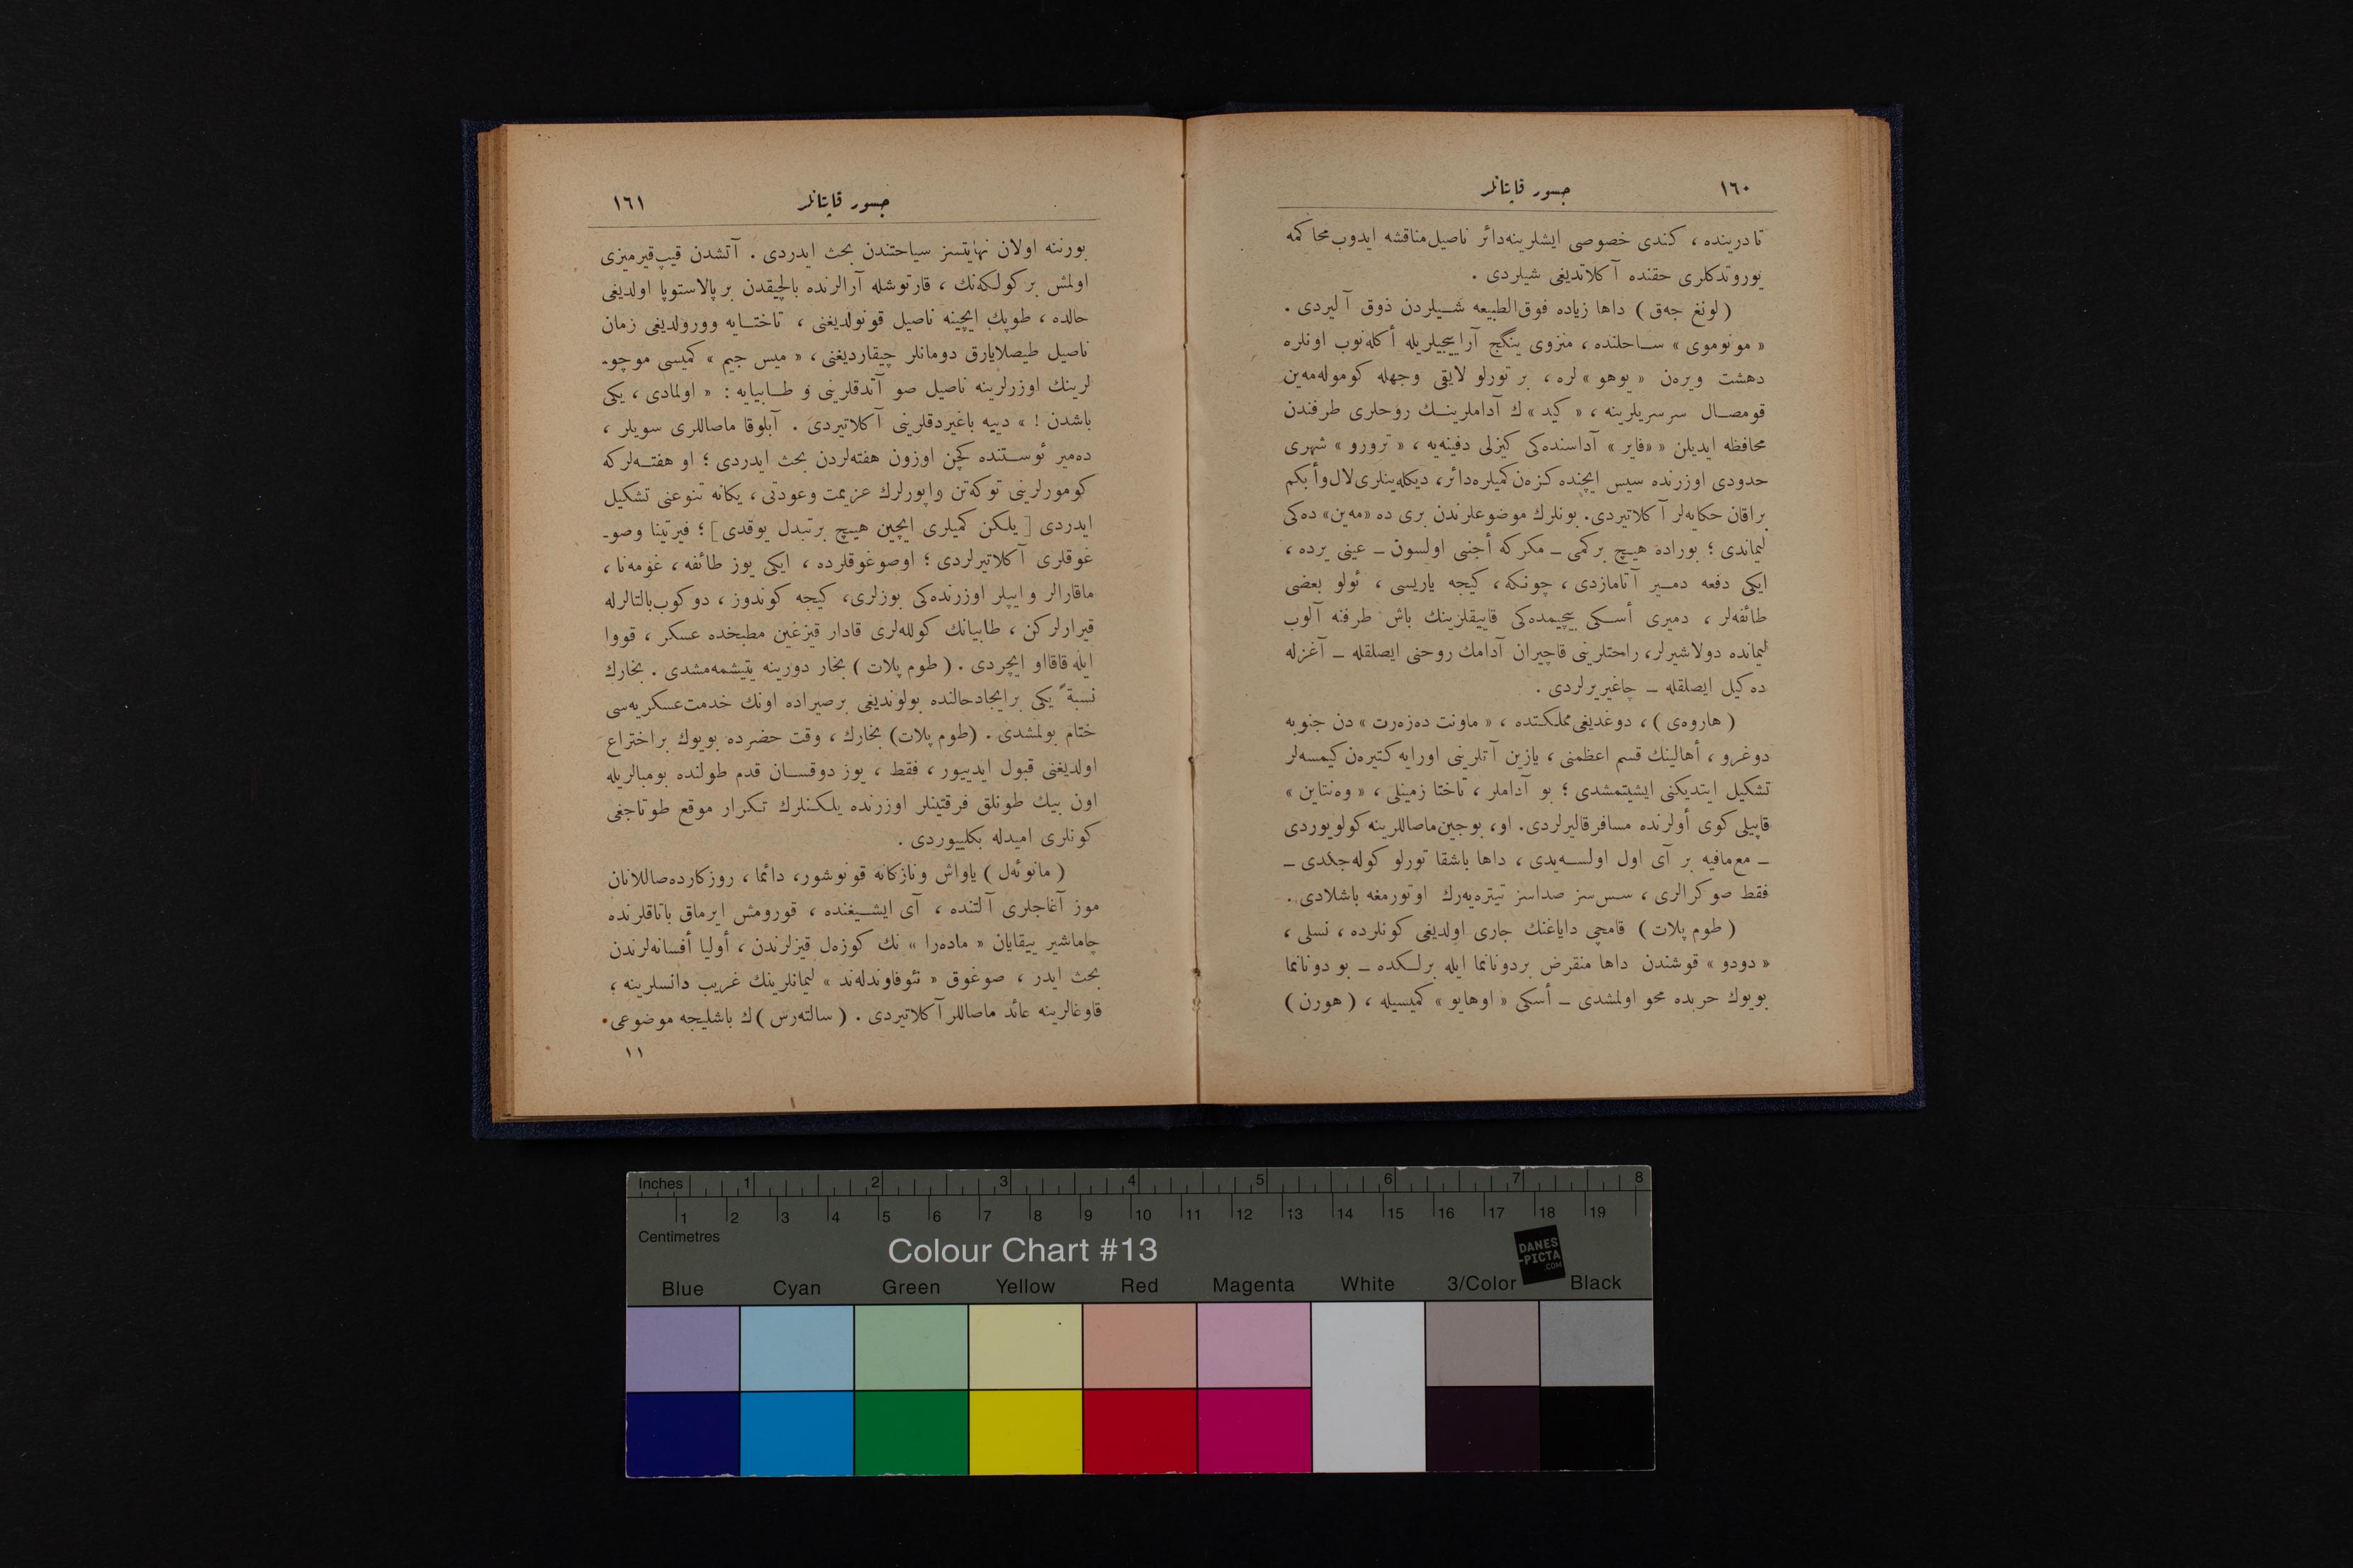 ١٦٠
جسور قاپتانلر
تا درینده ، کندی خصوصی ایشلرینه‌دائر ناصیل مناقشه ایدوب محاکمه
یوروتدکلری حقنده آکلاتدیغی شیلردی .
( لونغ جه‌ق ) داها زیاده فوق‌الطبیعه شـیلردن ذوق آلیردی .
« مونوموی » سـاحلنده ، منزوی ینگج آراییجیلریله أکله‌نوب اونلره
دهشت ویره‌ن « یوهو » لره ، بر تورلو لایقی وجهله کوموله‌مه‌ین
قومصـال سرسریلرینه ، « کید » ك آداملرینـك روحلری طرفندن
محافظه ایدیلن « «فایر » آداسنده‌کی کیزلی دفینه‌یه ، « ترورو » شهری
حدودی اوزرنده سیس ایچنده کزه‌ن کمیلره‌دائر، دیکله‌ینلری لال و أبکم
براقان حکایه‌لر آکلاتیردی. بونلرك موضوعلرندن بری ده «مه‌ین» ده‌کی
لیماندی ؛ بوراده هیـچ برکمی ـ مکر که أجنبی اولسون ـ عینی یرده ،
ایکی دفعه دمـیر آتامازدی ، چونکه ، کیجه یاریسی ، ئولو بعضی
طائفه‌لر ، دمیری أسـکی بیچیمده‌کی قاییقلرینك باش طرفنه آلوب
لیمانده دولاشیرلر، راحتلرینی قاچیران آدامك روحنی ایصلقله ـ آغزله
ده‌کیل ایصلقله ـ چاغیریرلردی .
( هاروه‌ی ) ، دوغدیغی مملکتده ، « ماونت ده‌زه‌رت » دن جنوبه
دوغرو ، أهالینك قسم اعظمنی ، یازین آتلرینی اورایه کتیره‌ن کیمسه‌لر
تشکیل ایتدیکنی ایشیتمشدی ؛ بو آداملر ، تاختا زمینلی ، « وه‌نتاین »
قاپیلی کوی أولرنده مسافر قالیرلردی. او، بوجین ماصاللرینه کولویوردی
ـ مع‌مافیه بر آی اول اولسـه‌یدی ، داها باشقا تورلو کوله‌جکدی ـ
فقط صوکرالری ، سس‌سز صداسز تیتره‌یه‌رك اوتورمغه باشلادی .
( طوم پلات ) قامچی دایاغنك جاری اولدیغی کونلرده ، نسلی ،
« دودو » قوشندن داها منقرض بردونانما ایله برلـکده ـ بو دونانما
بویوك حربده محو اولمشدی ـ أسکی « اوهایو » کمیسیله ، ( هورن )
جسور قاپتانلر
١٦١
بورننه اولان نهایتسز سیاحتندن بحث ایدردی . آتشدن قیپ‌قیرمیزی
اولمش بر کولـکه‌نك ، قارتوشله آرالرنده بالچیقدن بر پالاستوپا اولدیغی
حالده ، طوپك ایچینه ناصیل قونولدیغنی ، تاختـایه وورولدیغی زمان
ناصیل طیصلایارق دومانلر چیقاردیغنی ، « میس جیم » کمیسی موچو-
لرینك اوزرلرینه ناصیل صو آتدقلرینی و طـابیایه : « اولمادی ، یکی
باشدن ! » دییه باغیردقلرینی آکلاتیردی . آبلوقا ماصاللری سویلر ،
ده‌میر ئوسـتنده کچن اوزون هفته‌لردن بحث ایدردی ؛ او هفتـه‌لر که
کومورلرینی توکه‌تن واپورلرك عزیمت وعودتی ، یکانه تنوعنی تشکیل
ایدردی [ یلکن کمیلری ایچین هیـچ بر تبدل یوقدی ] ؛ فیرتینا وصو-
غوقلری آکلاتیرلردی ؛ اوصوغوقلرده ، ایکی یوز طائفه ، غومه‌نا ،
ماقارالر و ایپلر اوزرنده‌کی بوزلری، کیجه کوندوز ، دوکوب بالتالرله
قیرارلرکن ، طابیانك کولله‌لری قادار قیزغین مطبخده عسکر ، قووا
ایله قاقااو ایچردی . ( طوم پلات ) بخار دورینه یتیشمه‌مشدی . بخارك
نسبةً یکی بر ایجاد حالنده بولوندیغی بر صیراده اونك خدمت عسکریه‌سی
ختام بولمشدی . (طوم پلات) بخارك ، وقت حضرده بویوك بر اختراع
اولدیغنی قبول ایدییور ، فقط ، یوز دوقسـان قدم طولنده بومبالریله
اون بیك طونلق فرقتینلر اوزرنده یلکـنلرك تـکرار موقع طوتاجغی
کونلری امیدله بکلییوردی .
( مانوئه‌ل ) یاواش ونازکانه قونوشور، دائما ، روزکارده صاللانان
موز آغاجلری آلتنده ، آی ایشـیغنده ، قورومش ایرماق یاتاقلرنده
چاماشیر ییقایان « ماده‌را » نك کوزه‌ل قیزلرندن ، أولیا أفسانه‌لرندن
بحث ایدر ، صوغوق « نئوفاوندله‌ند » لیمانلرینك غریب دانسلرینه ،
قاوغالرینه عائد ماصاللر آکلاتیردی . ( سالته‌رس ) ك باشلیجه موضوعی
١١
Inches 1 2 3 4 5 6 7 8
1 2 3 4 5 6 7 8 9 10 11 12 13 14 15 16 17 18 19
Centimetres
Colour Chart #13
DANES
-PICTA
.COM
Blue Cyan Green Yellow Red Magenta White 3/Color Black